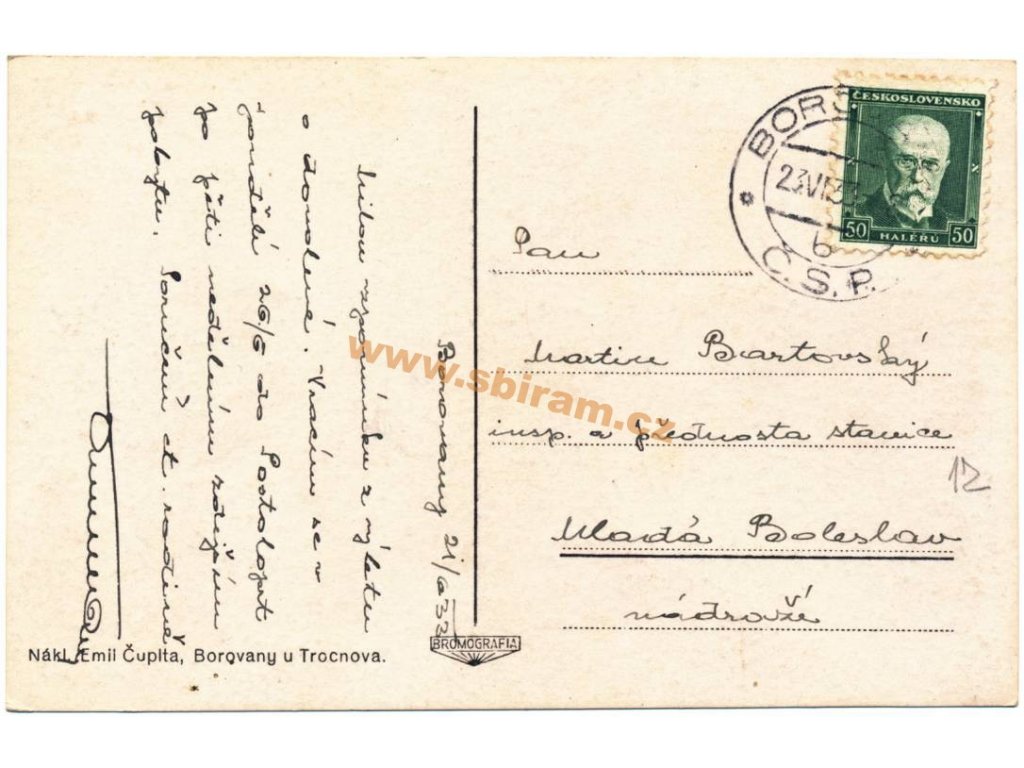 Borovany 21/6 33
Milou vzpomínku z výletu
o dovolené. Vracím se v
pondělí 26/6 do Postoloprt
po pěti nedělním zdejším
pobytu. Poroučení ct. rodině
Pan
Martin Bartovský
insp. a přednosta stanice
Mladá Boleslav
nádraží
12
BORŠ
23 VI 33
6
Č.S.P.
ČESKOSLOVENSKO
50 HALÉŘŮ 50
www.sbiram.cz
BROMOGRAFIA
Nákl. Emil Čuplta, Borovany u Trocnova.